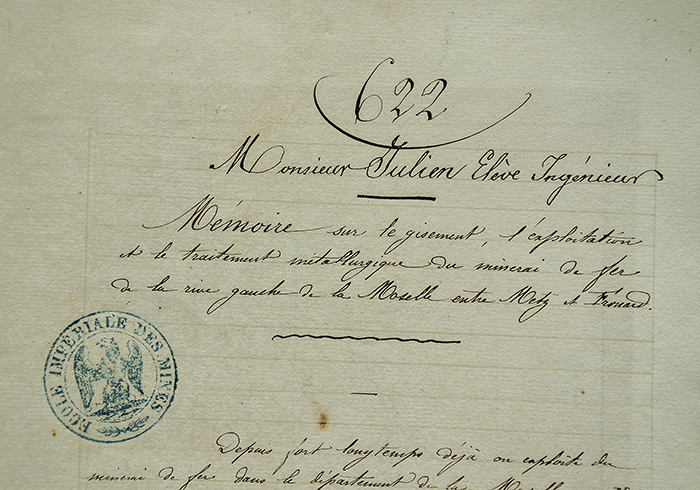 622
Monsieur Julien Elève Ingénieur
Mémoire sur le gisement, l'exploitation
et le traitement métallurgique du minerai de fer
de la rive gauche de la Moselle entre Metz et Frouard.
ECOLE IMPÉRIALE DES MINES
Depuis fort longtemps déjà on exploite du
minerai de fer dans le département de la Moselle